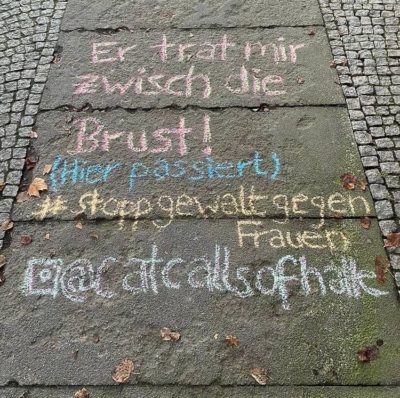 Er trat mir
zwisch die
Brust!
(Hier passiert)
# stoppgewalt gegen
Frauen
@catcallsofhalle